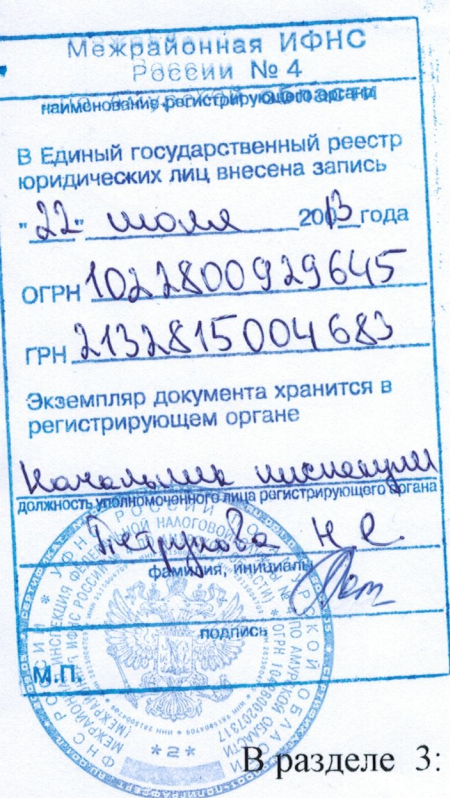 Межрайонная ИФНС
России № 4
наименование регистрирующего органа
В Единый государственный реестр
юридических лиц внесена запись
"22" июля 2013 года
ОГРН 1022800929645
ГРН 2132815004683
Экземпляр документа хранится в
регистрирующем органе
Начальник инспекции
должность уполномоченного лица регистрирующего органа
Н С.
фамилия, инициалы
подпись
М.П.
*2*
В разделе 3: